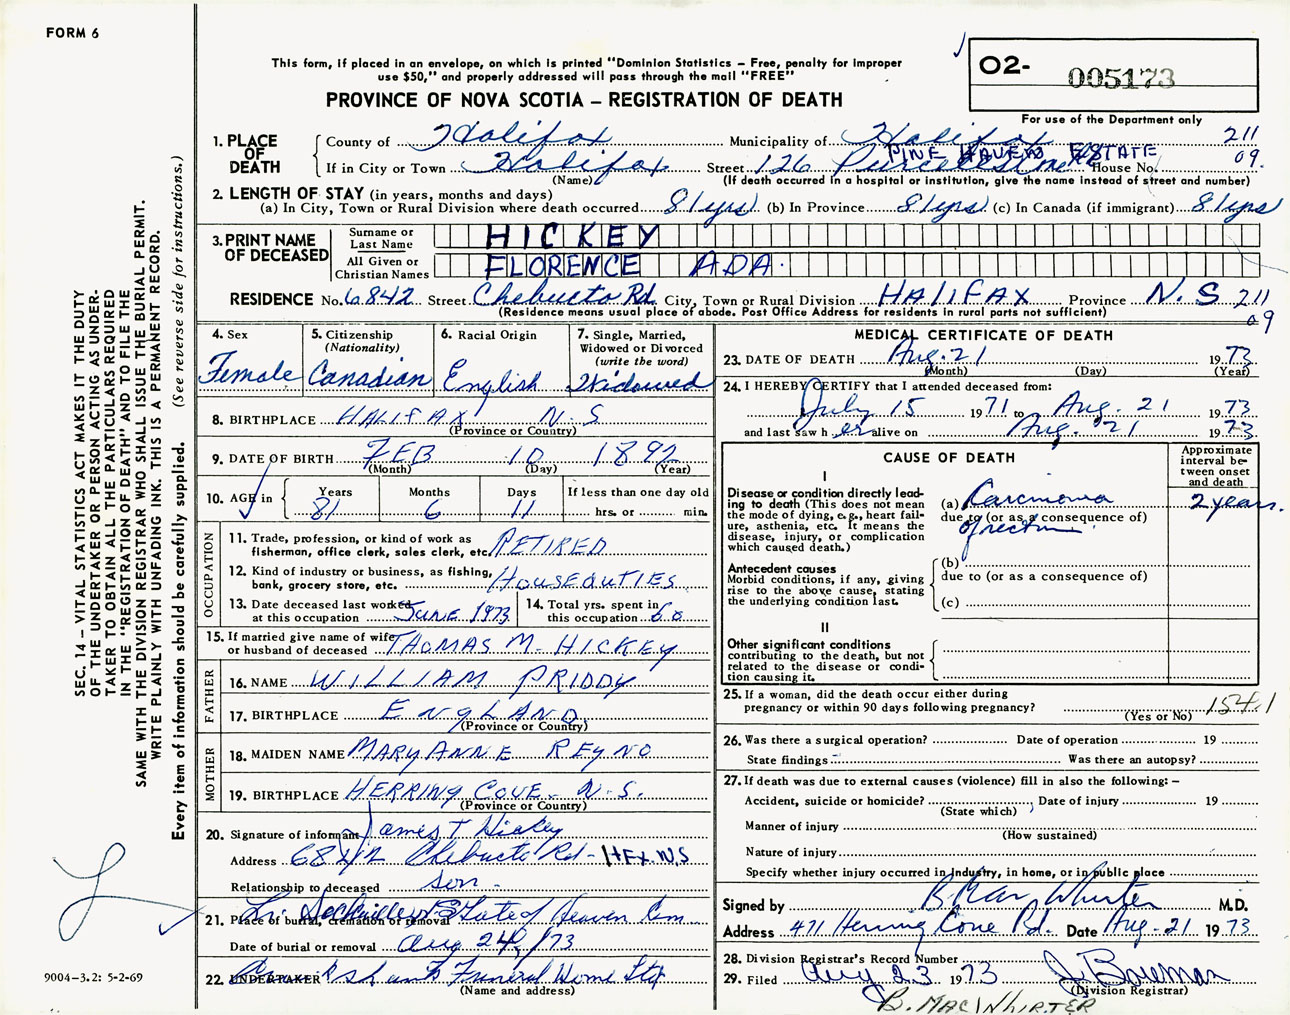 FORM 6
This form, if placed in an envelope, on which is printed "Dominion Statistics – Free, penalty for improper
use $50," and properly addressed will pass through the mail "FREE"
O2- 005173
For use of the Department only
PROVINCE OF NOVA SCOTIA – REGISTRATION OF DEATH
1. PLACE OF DEATH
County of Halifax Municipality of Halifax 211
PINE HAVEN ESTATE
If in City or Town Halifax Street 126 House No. 09.
(Name) (If death occurred in a hospital or institution, give the name instead of street and number)
2. LENGTH OF STAY (in years, months and days)
(a) In City, Town or Rural Division where death occurred 81 yrs (b) In Province 81 yrs. (c) In Canada (if immigrant) 81 yrs
3. PRINT NAME OF DECEASED
Surname or Last Name HICKEY
All Given or Christian Names FLORENCE ADA.
RESIDENCE No. 6842 Street Chebucto Rd City, Town or Rural Division HALIFAX Province N.S 211
(Residence means usual place of abode. Post Office Address for residents in rural parts not sufficient) 09
4. Sex Female
5. Citizenship (Nationality) Canadian
6. Racial Origin English
7. Single, Married, Widowed or Divorced (write the word) Widowed
8. BIRTHPLACE HALIFAX N.S
(Province or Country)
9. DATE OF BIRTH FEB 10 1892
(Month) (Day) (Year)
10. AGE in Years 81 Months 6 Days 11 If less than one day old hrs. or min.
OCCUPATION
11. Trade, profession, or kind of work as fisherman, office clerk, sales clerk, etc. RETIRED
12. Kind of industry or business, as fishing, bank, grocery store, etc. HOUSEDUTIES
13. Date deceased last worked at this occupation JUNE 1973
14. Total yrs. spent in this occupation 60
15. If married give name of wife or husband of deceased THOMAS M. HICKEY
FATHER
16. NAME WILLIAM PRIDDY
17. BIRTHPLACE ENGLAND,
(Province or Country)
MOTHER
18. MAIDEN NAME MARY ANNE REYNO
19. BIRTHPLACE HERRING COVE - N.S.
(Province or Country)
20. Signature of informant James T Hickey
Address 6842 Chebucto Rd - HFX. N.S
Relationship to deceased son -
21. Place of burial, cremation or removal Lr. Sackville NS Gate of Heaven Cem
Date of burial or removal Aug 24, /73
22. UNDERTAKER Cruikshanks Funeral Home Ltd
(Name and address)
MEDICAL CERTIFICATE OF DEATH
23. DATE OF DEATH Aug. 21 1973
(Month) (Day) (Year)
24. I HEREBY CERTIFY that I attended deceased from:
July 15 1971 to Aug. 21 1973
and last saw her alive on Aug. 21 1973
CAUSE OF DEATH
Approximate interval between onset and death
I
Disease or condition directly leading to death (This does not mean the mode of dying, e.g., heart failure, asthenia, etc. It means the disease, injury, or complication which caused death.)
(a) Carcinoma 2 years.
due to (or as a consequence of)
of rectum
Antecedent causes
Morbid conditions, if any, giving rise to the above cause, stating the underlying condition last.
(b)
due to (or as a consequence of)
(c)
II
Other significant conditions
contributing to the death, but not related to the disease or condition causing it.
25. If a woman, did the death occur either during
pregnancy or within 90 days following pregnancy? 154.1
(Yes or No)
26. Was there a surgical operation? Date of operation 19
State findings Was there an autopsy?
27. If death was due to external causes (violence) fill in also the following: –
Accident, suicide or homicide? Date of injury 19
(State which)
Manner of injury
(How sustained)
Nature of injury
Specify whether injury occurred in industry, in home, or in public place
Signed by B MacWhirter M.D.
Address 471 Herring Cove Rd. Date Aug. 21 1973
28. Division Registrar's Record Number
29. Filed Aug 23 1973 J. Bateman
(Division Registrar)
B. MACWHIRTER
SEC. 14 – VITAL STATISTICS ACT MAKES IT THE DUTY
OF THE UNDERTAKER OR PERSON ACTING AS UNDER-
TAKER TO OBTAIN ALL THE PARTICULARS REQUIRED
IN THE "REGISTRATION OF DEATH" AND TO FILE THE
SAME WITH THE DIVISION REGISTRAR WHO SHALL ISSUE THE BURIAL PERMIT.
WRITE PLAINLY WITH UNFADING INK. THIS IS A PERMANENT RECORD.
Every item of information should be carefully supplied. (See reverse side for instructions.)
9004–3.2: 5-2-69